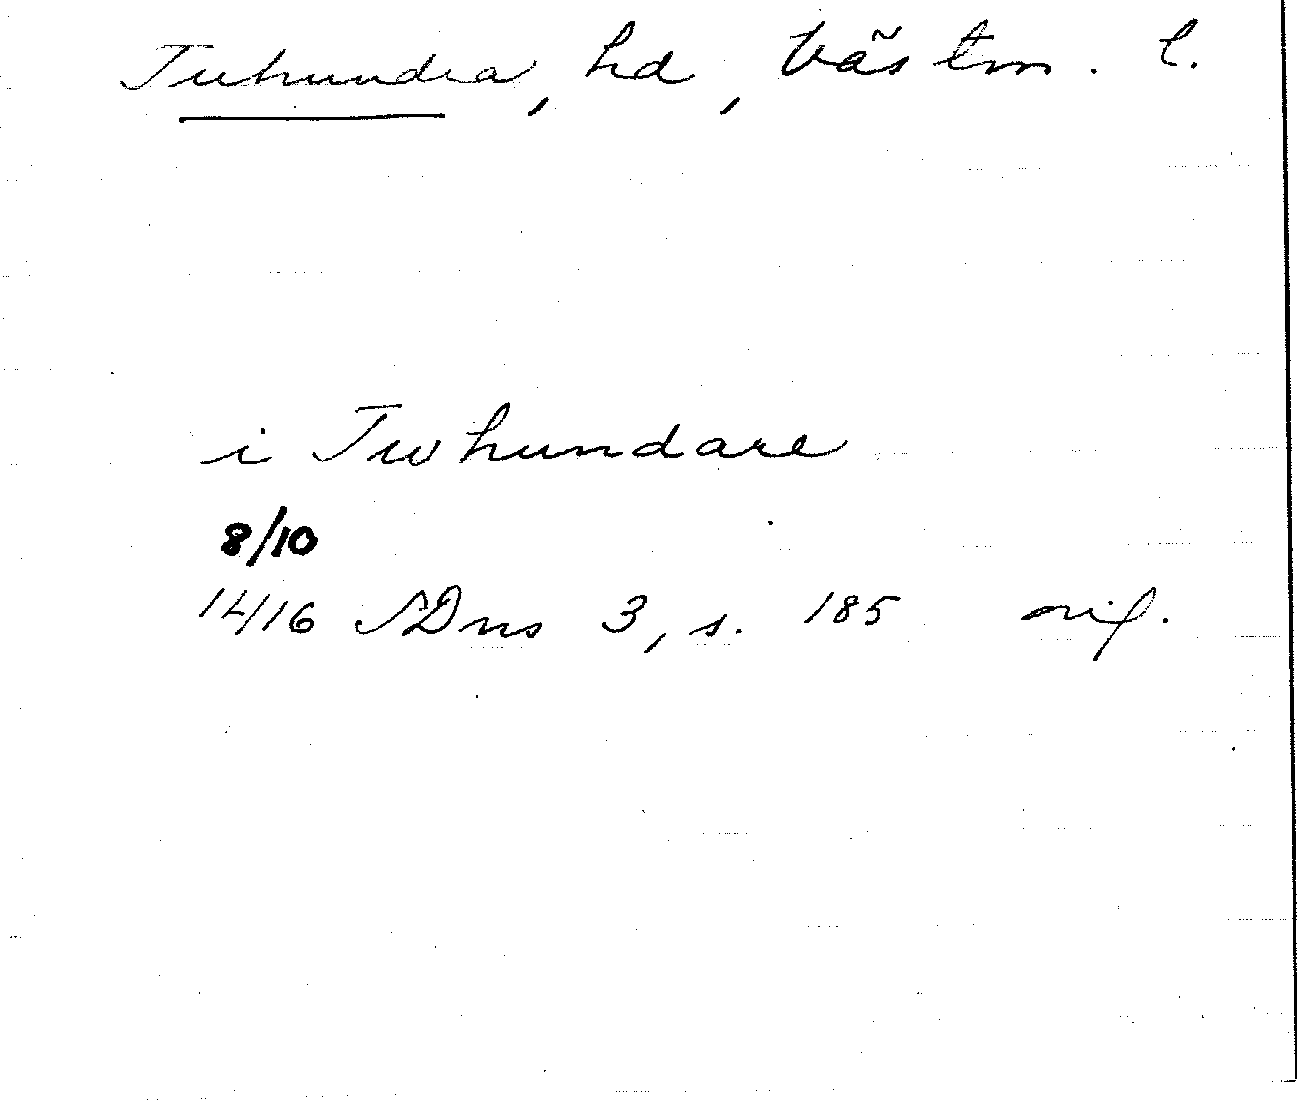 Tuhundra, hd, Västm. l.
i Twhundare
8/10
1416 SDns 3, s. 185 orig.